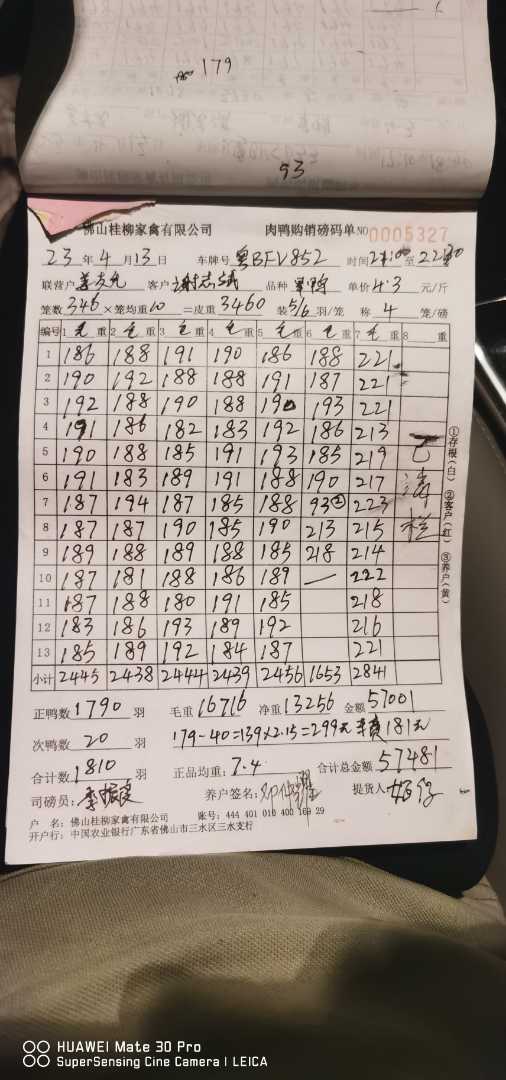 179
93
佛山桂柳家禽有限公司 肉鸭购销磅码单 NO 0005327
23 年 4 月 13 日 车牌号 粤BFV852 时间 21:00 至 22:30
联营户 客户 谢志斌 品种 单价 4.3 元/斤
笼数 346 × 笼均重 10 = 皮重 3460 装 5/6 羽/笼 称 4 笼/磅
编号 1 毛 重 2 毛 重 3 毛 重 4 毛 重 5 毛 重 6 毛 重 7 毛 重 8 重
1 186 188 191 190 186 188 221
2 190 192 188 188 191 187 221
3 192 188 190 188 190 193 221
4 191 186 182 183 192 186 213
5 190 188 185 191 193 185 219
6 191 183 189 191 188 190 217
7 187 194 187 185 188 93② 223
8 187 187 190 185 190 213 215
9 189 188 189 188 185 218 214
10 187 181 188 186 189 — 222
11 187 188 180 191 185 218
12 183 186 193 189 192 216
13 185 189 192 184 187 221
小计 2445 2438 2444 2439 2456 1653 2841
已清
①存根(白) ②客户(红) ③养户(黄)
正鸭数 1790 羽 毛重 16716 净重 13256 金额 57001
次鸭数 20 羽 179-40=139×2.15=299元 181元
合计数 1810 羽 正品均重: 7.4 合计总金额 57481
司磅员: 李振良 养户签名: 提货人
户 名: 佛山桂柳家禽有限公司 账号: 444 401 010 400 169 29
开户行: 中国农业银行广东省佛山市三水区三水支行
HUAWEI Mate 30 Pro
SuperSensing Cine Camera | LEICA